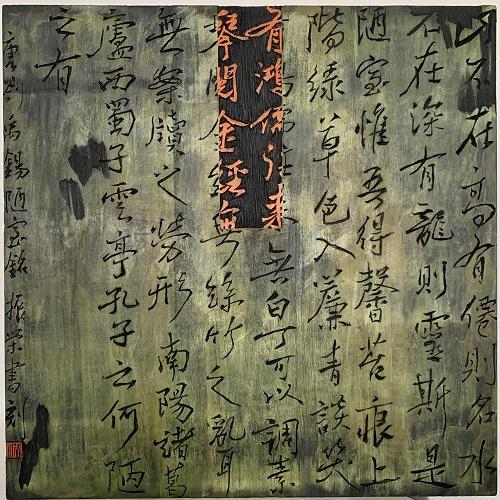 山不在高有僊則名水
不在深有龍則靈斯是
陋室惟吾得馨苔痕上
階緑草色入簾青談笑
有鴻儒往来無白丁可以調素
琴閱金經無絲竹之亂耳
無案牘之勞形南陽諸葛
廬西蜀子雲亭孔子云何陋
之有
唐劉禹錫陋室銘振榮書刻